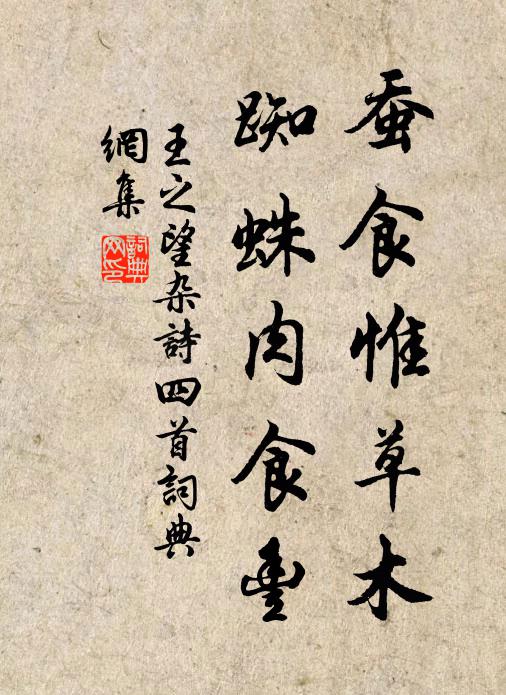 蚕食惟草木
踟蛛肉食豊
王之望杂詩四首詞典
網集
詞典网印